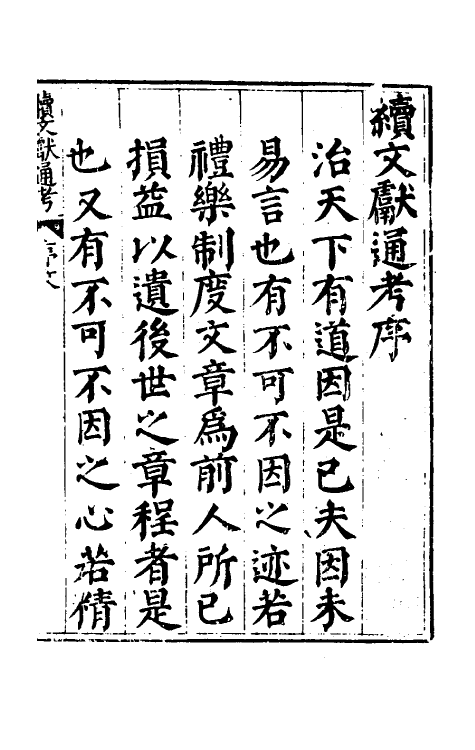 續文獻通考序
治天下有道因是已夫因未
易言也有不可不因之迹若
禮樂制度文章爲前人所已
損益以遺後世之章程者是
也又有不可不因之心若情
續文獻通考
序文